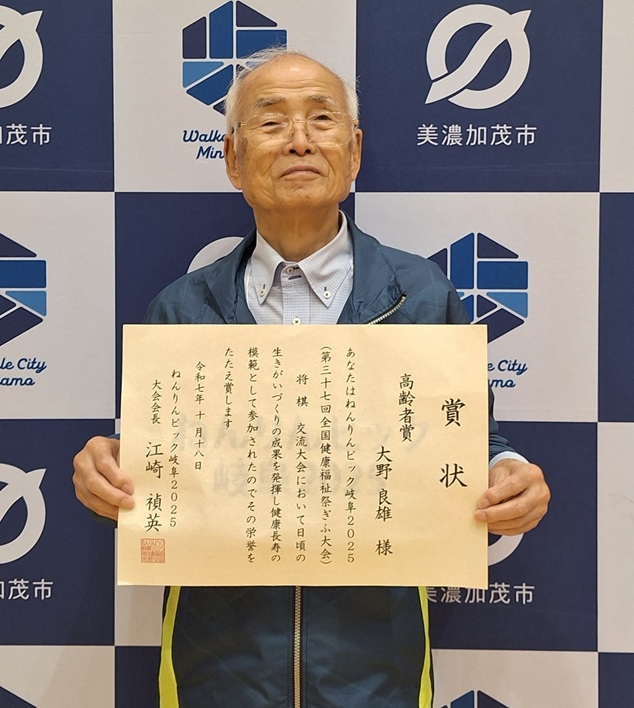 賞状
高齢者賞
大野 良雄 様
あなたはねんりんピック岐阜2025
(第三十七回全国健康福祉祭ぎふ大会)
将棋 交流大会において日頃の
生きがいづくりの成果を発揮し健康長寿の
模範として参加されたのでその栄誉を
たたえ賞します
令和七年 十月十八日
ねんりんピック岐阜2025
大会会長 江崎 禎英
加茂市
Walka
Min
美濃加茂市
le City
amo
le City
kamo
加茂市
美濃加茂市